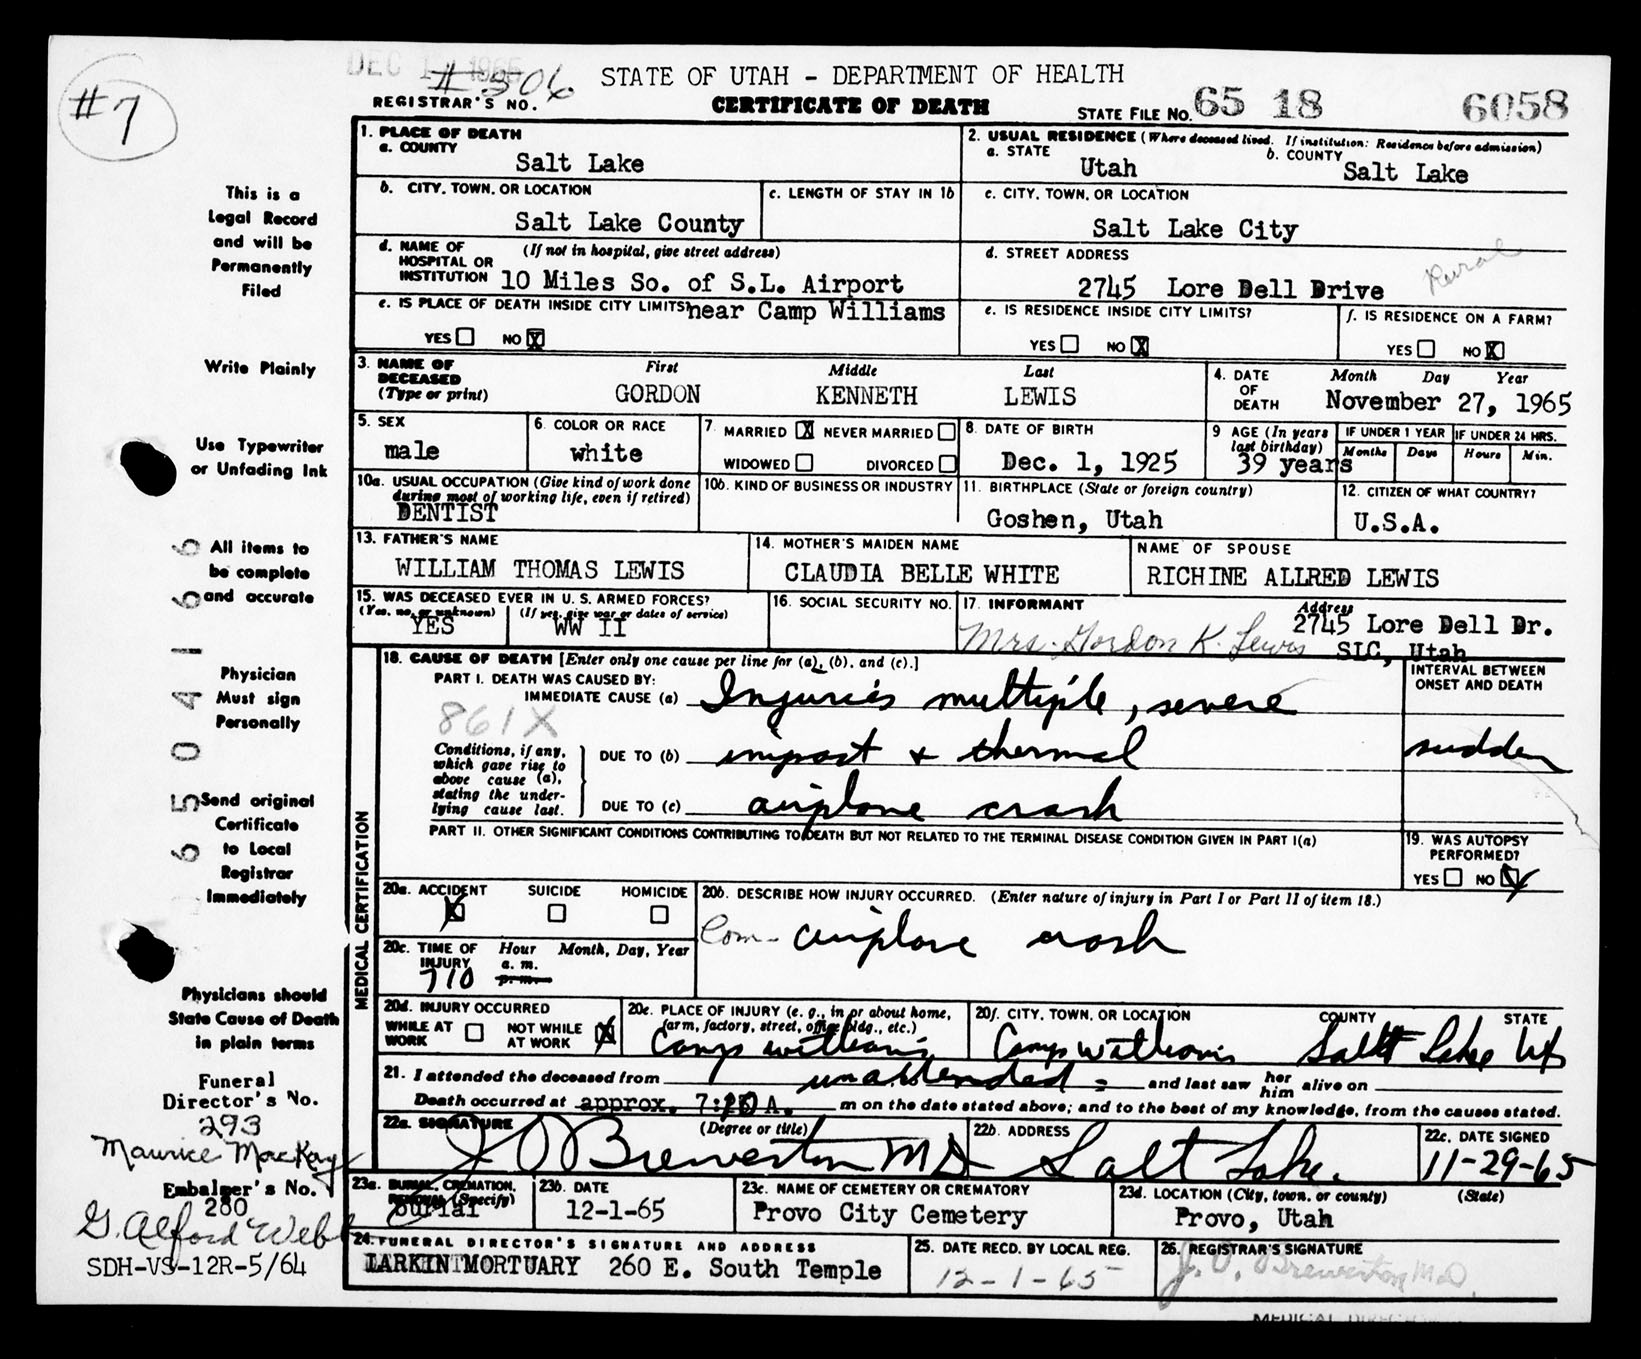 #7
DEC 1 1965
# 306
STATE OF UTAH - DEPARTMENT OF HEALTH
REGISTRAR'S NO.
CERTIFICATE OF DEATH
STATE FILE NO. 65 18 6058
This is a
Legal Record
and will be
Permanently
Filed
Write Plainly
Use Typewriter
or Unfading Ink
All items to
be complete
and accurate
Physician
Must sign
Personally
Send original
Certificate
to Local
Registrar
Immediately
Physicians should
State Cause of Death
in plain terms
Funeral
Director's No.
293
Maurice MacKay
Embalmer's No.
280
G. Alford Webb
SDH-VS-12R-5/64
6 5 0 4 1 6 6
1. PLACE OF DEATH
a. COUNTY
Salt Lake
2. USUAL RESIDENCE (Where deceased lived. If institution: Residence before admission)
a. STATE
Utah
b. COUNTY
Salt Lake
b. CITY, TOWN, OR LOCATION
Salt Lake County
c. LENGTH OF STAY IN 1b
c. CITY, TOWN, OR LOCATION
Salt Lake City
d. NAME OF HOSPITAL OR INSTITUTION (If not in hospital, give street address)
10 Miles So. of S.L. Airport
near Camp Williams
d. STREET ADDRESS
2745 Lore Dell Drive
Rural
e. IS PLACE OF DEATH INSIDE CITY LIMITS?
YES NO X
e. IS RESIDENCE INSIDE CITY LIMITS?
YES NO X
f. IS RESIDENCE ON A FARM?
YES NO X
3. NAME OF DECEASED (Type or print)
First Middle Last
GORDON KENNETH LEWIS
4. DATE OF DEATH
Month Day Year
November 27, 1965
5. SEX
male
6. COLOR OR RACE
white
7. MARRIED X NEVER MARRIED
WIDOWED DIVORCED
8. DATE OF BIRTH
Dec. 1, 1925
9 AGE (In years last birthday)
39 years
IF UNDER 1 YEAR
Months Days
IF UNDER 24 HRS.
Hours Min.
10a. USUAL OCCUPATION (Give kind of work done during most of working life, even if retired)
DENTIST
10b. KIND OF BUSINESS OR INDUSTRY
11. BIRTHPLACE (State or foreign country)
Goshen, Utah
12. CITIZEN OF WHAT COUNTRY?
U.S.A.
13. FATHER'S NAME
WILLIAM THOMAS LEWIS
14. MOTHER'S MAIDEN NAME
CLAUDIA BELLE WHITE
NAME OF SPOUSE
RICHINE ALLRED LEWIS
15. WAS DECEASED EVER IN U.S. ARMED FORCES?
(Yes, no, or unknown) (If yes, give war or dates of service)
YES WW II
16. SOCIAL SECURITY NO.
17. INFORMANT
Mrs. Gordon K. Lewis
Address
2745 Lore Dell Dr.
SLC, Utah
MEDICAL CERTIFICATION
18. CAUSE OF DEATH [Enter only one cause per line for (a), (b), and (c).]
INTERVAL BETWEEN ONSET AND DEATH
PART I. DEATH WAS CAUSED BY:
IMMEDIATE CAUSE (a) Injuries multiple, severe
861X
Conditions, if any, which gave rise to above cause (a), stating the underlying cause last.
DUE TO (b) impact & thermal
sudden
DUE TO (c) airplane crash
PART II. OTHER SIGNIFICANT CONDITIONS CONTRIBUTING TO DEATH BUT NOT RELATED TO THE TERMINAL DISEASE CONDITION GIVEN IN PART I(a)
19. WAS AUTOPSY PERFORMED?
YES NO X
20a. ACCIDENT SUICIDE HOMICIDE
X
20b. DESCRIBE HOW INJURY OCCURRED. (Enter nature of injury in Part I or Part II of item 18.)
Com- airplane crash
20c. TIME OF INJURY
Hour Month, Day, Year
710 a. m.
p. m.
20d. INJURY OCCURRED
WHILE AT WORK NOT WHILE AT WORK X
20e. PLACE OF INJURY (e. g., in or about home, farm, factory, street, office bldg., etc.)
Camp Williams
20f. CITY, TOWN, OR LOCATION COUNTY STATE
Camp Williams Salt Lake Ut
21. I attended the deceased from unattended - and last saw her him alive on
Death occurred at approx. 7:10 A. m on the date stated above; and to the best of my knowledge, from the causes stated.
22a. SIGNATURE (Degree or title)
J O Brewerton MD
22b. ADDRESS
Salt Lake.
22c. DATE SIGNED
11-29-65
23a. BURIAL, CREMATION, REMOVAL (Specify)
burial
23b. DATE
12-1-65
23c. NAME OF CEMETERY OR CREMATORY
Provo City Cemetery
23d. LOCATION (City, town, or county) (State)
Provo, Utah
24. FUNERAL DIRECTOR'S SIGNATURE AND ADDRESS
LARKIN MORTUARY 260 E. South Temple
25. DATE RECD. BY LOCAL REG.
12-1-65
26. REGISTRAR'S SIGNATURE
J. O. Brewerton M.D.